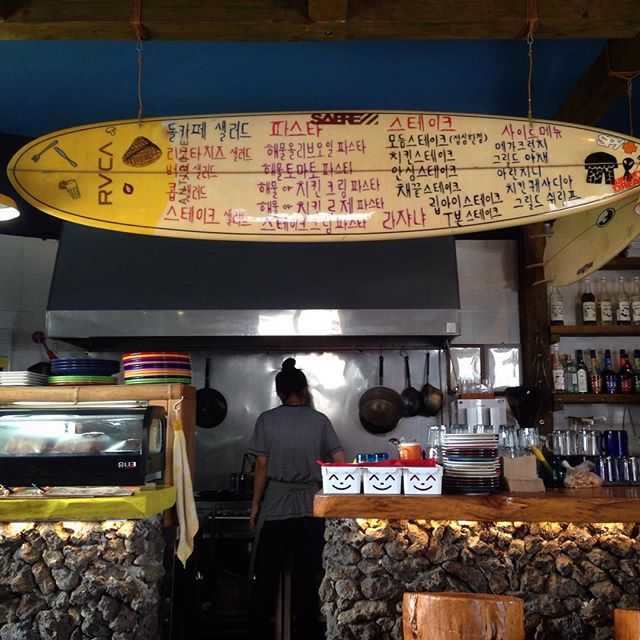 RVCA
돌카페 샐러드
리코타치즈 샐러드
버섯 샐러드
콥 샐러드
스테이크 샐러드
파스타
해물올리브오일 파스타
해물토마토 파스타
해물 or 치킨 크림 파스타
해물 or 치킨 로제 파스타
스테이크 크림 파스타
라자냐
SABRE
스테이크
모듬스테이크(점심한정)
치킨스테이크
안심스테이크
채끝스테이크
립아이스테이크
T본스테이크
사이드메뉴
메가크런치
그릴드 야채
아란치니
치킨퀘사디아
그릴드 쉬림프
SPY